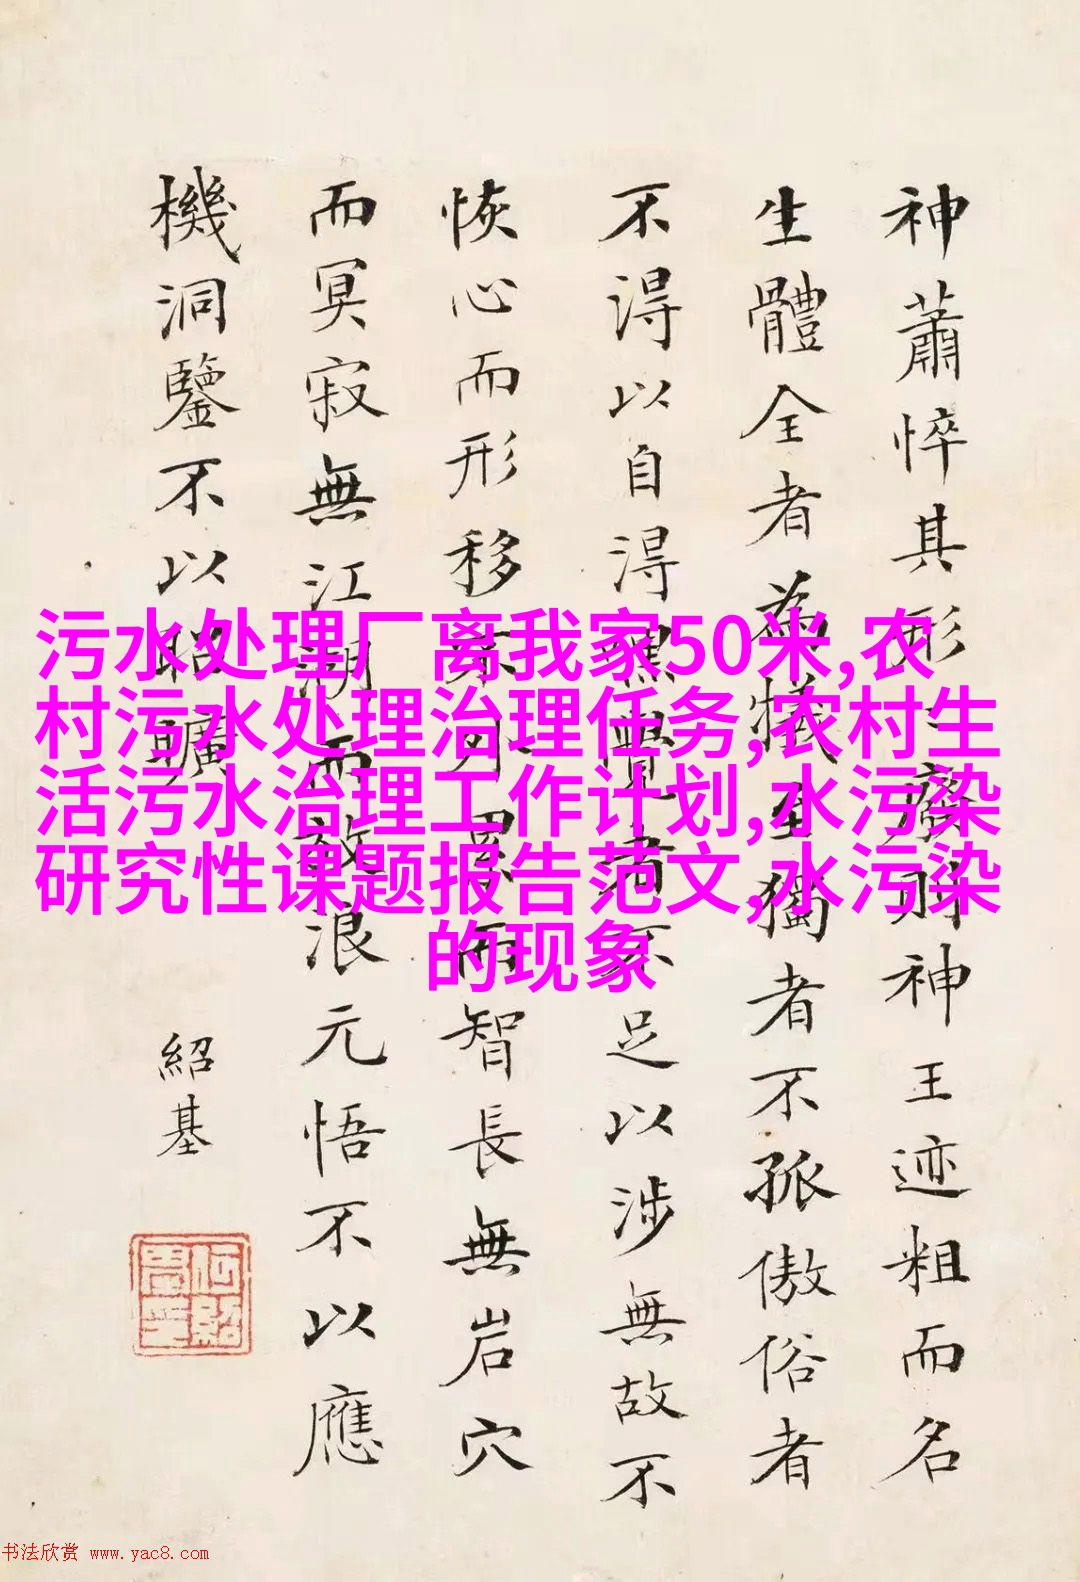 神蕭悴其形廢則神王迹粗而名
生體全者為犧至獨者不孤傲俗者
不得以自得覺者不足以涉無故不
恢心而形移外累而智長無岩穴
而冥寂無江湖而放浪元悟不以應
機洞鑒不以昭曠
紹基
污水处理厂离我家50米,农
村污水处理治理任务,农村生
活污水治理工作计划,水污染
研究性课题报告范文,水污染
的现象
书法欣赏 www.yac8.com